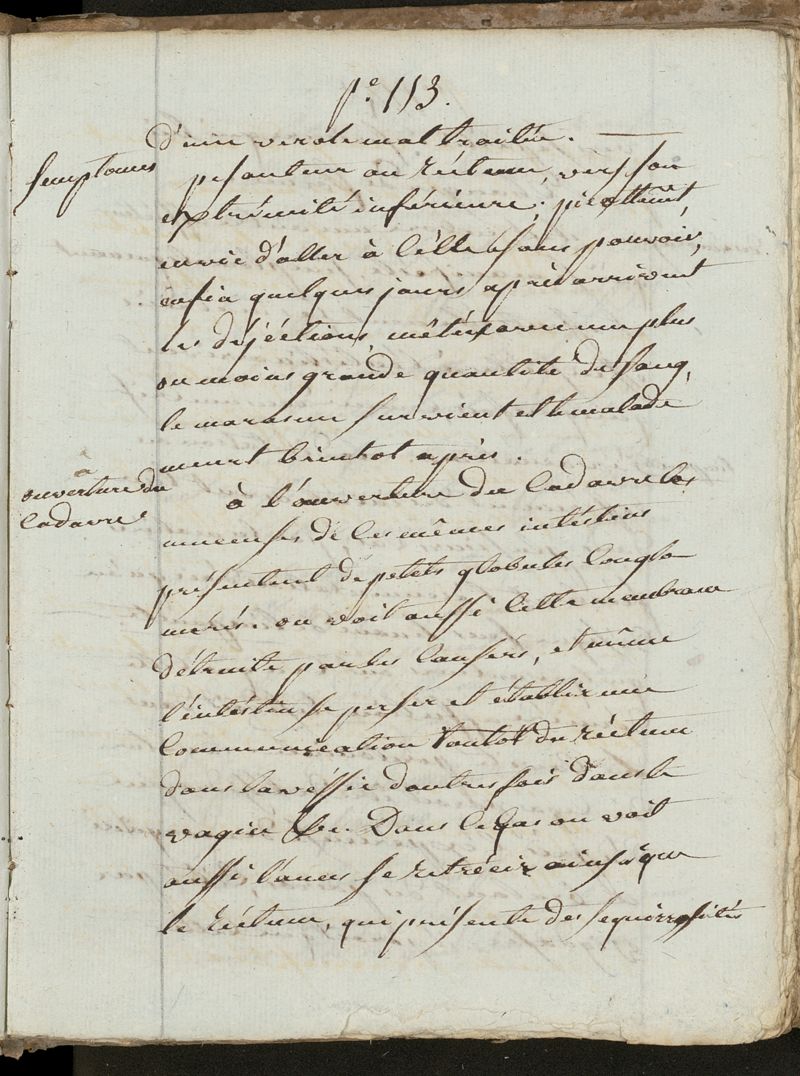 pe 113.
d'une verole mal traitée. —
Semptomes
pesanteur au réctum, vers son
extrémité inférieure, picottement,
envie d'aller à célle sans pouvoir,
enfin quelques jours après arrivent
les déjéctions, mêlés avec une plus
ou moins grande quantité de sang,
le marasme survient et le malade
meurt bientot après.
a
ouverture du
Cadavre
à l'ouverture du Cadavre les
muceuses de ces mêmes intéstins
présentent dépetits globules conglo
mérés. on voit aussi cette membrane
détruite par les cansérs, et même
l'intéstin se perser et établir une
Communication tantot du réctum
dans la véssie d'autres fois dans le
vagin &c. Dans ce Cas on voit
aussi l'anus se rétrécir ainsi que
le réctum, qui présente des sequirrosités